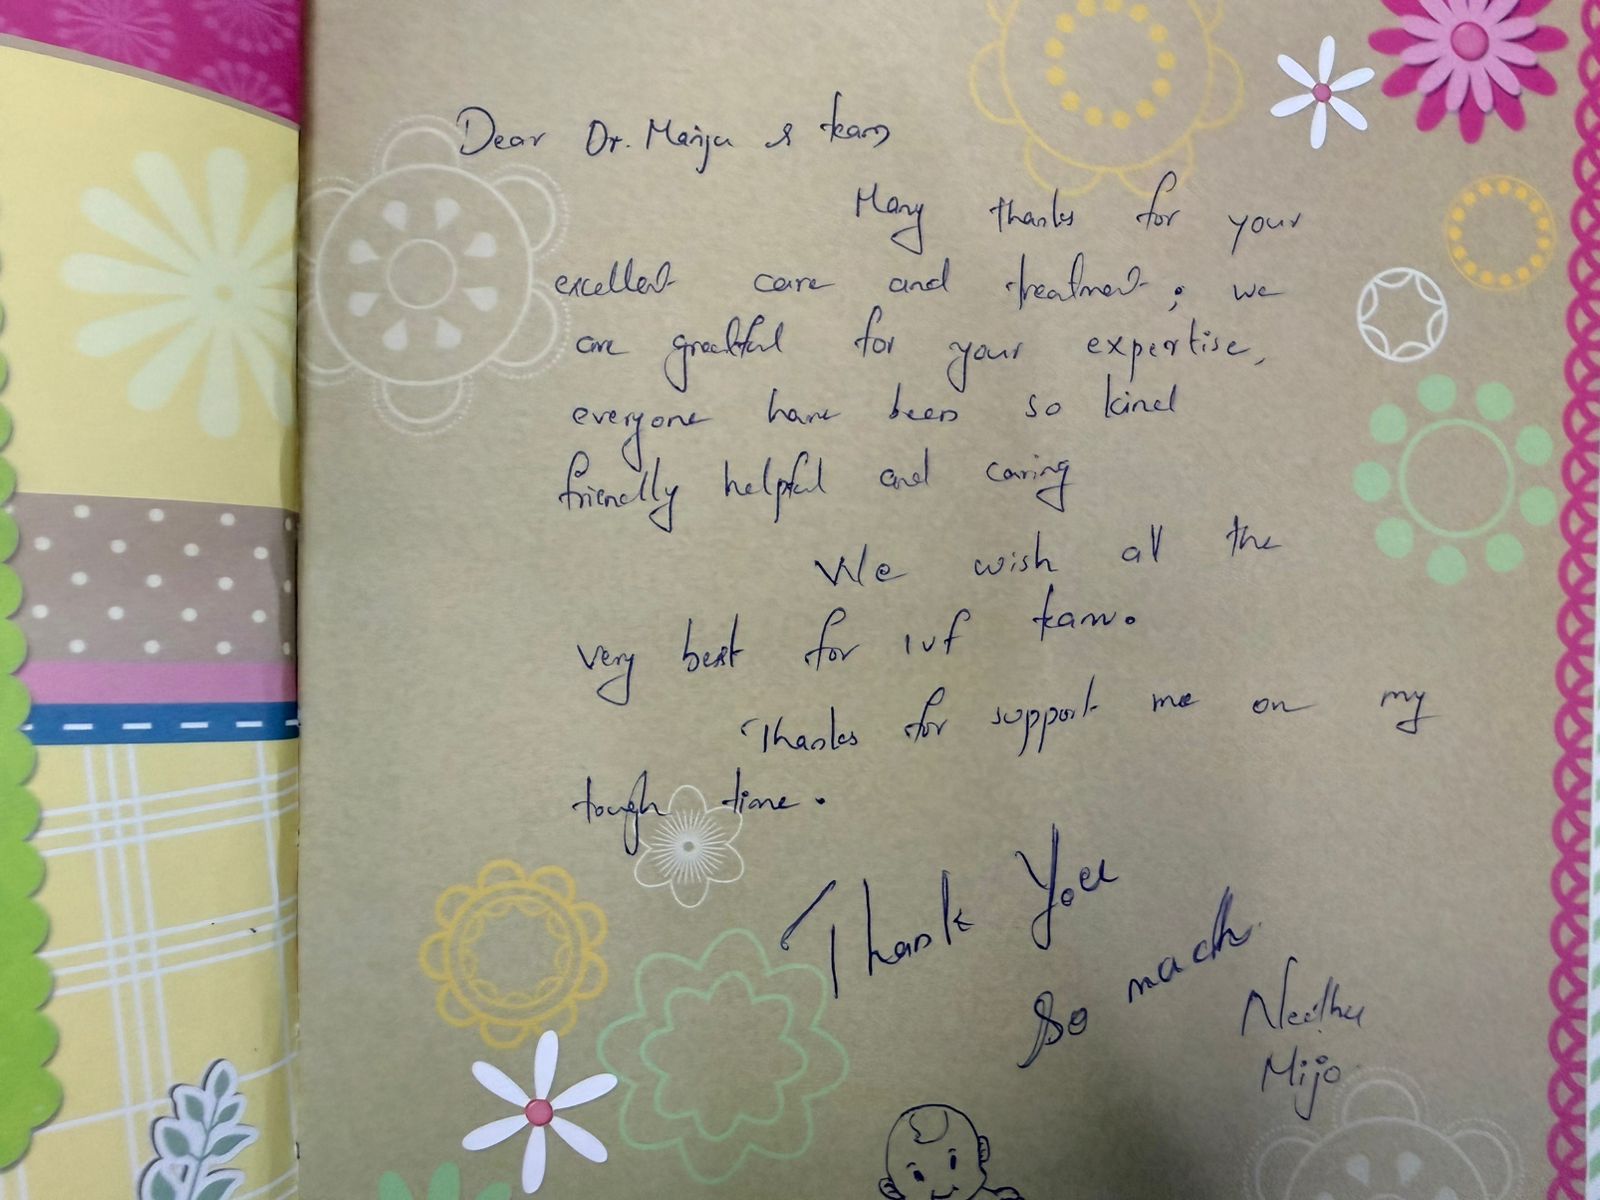 Dear Dr. Manju & team
Many thanks for your
excellent care and treatment; we
are greatful for your expertise,
everyone have been so kind
friendly helpful and caring
We wish all the
very best for ivf team.
Thanks for support me on my
tough time.
Thank You
So much
Neethu
Mijo